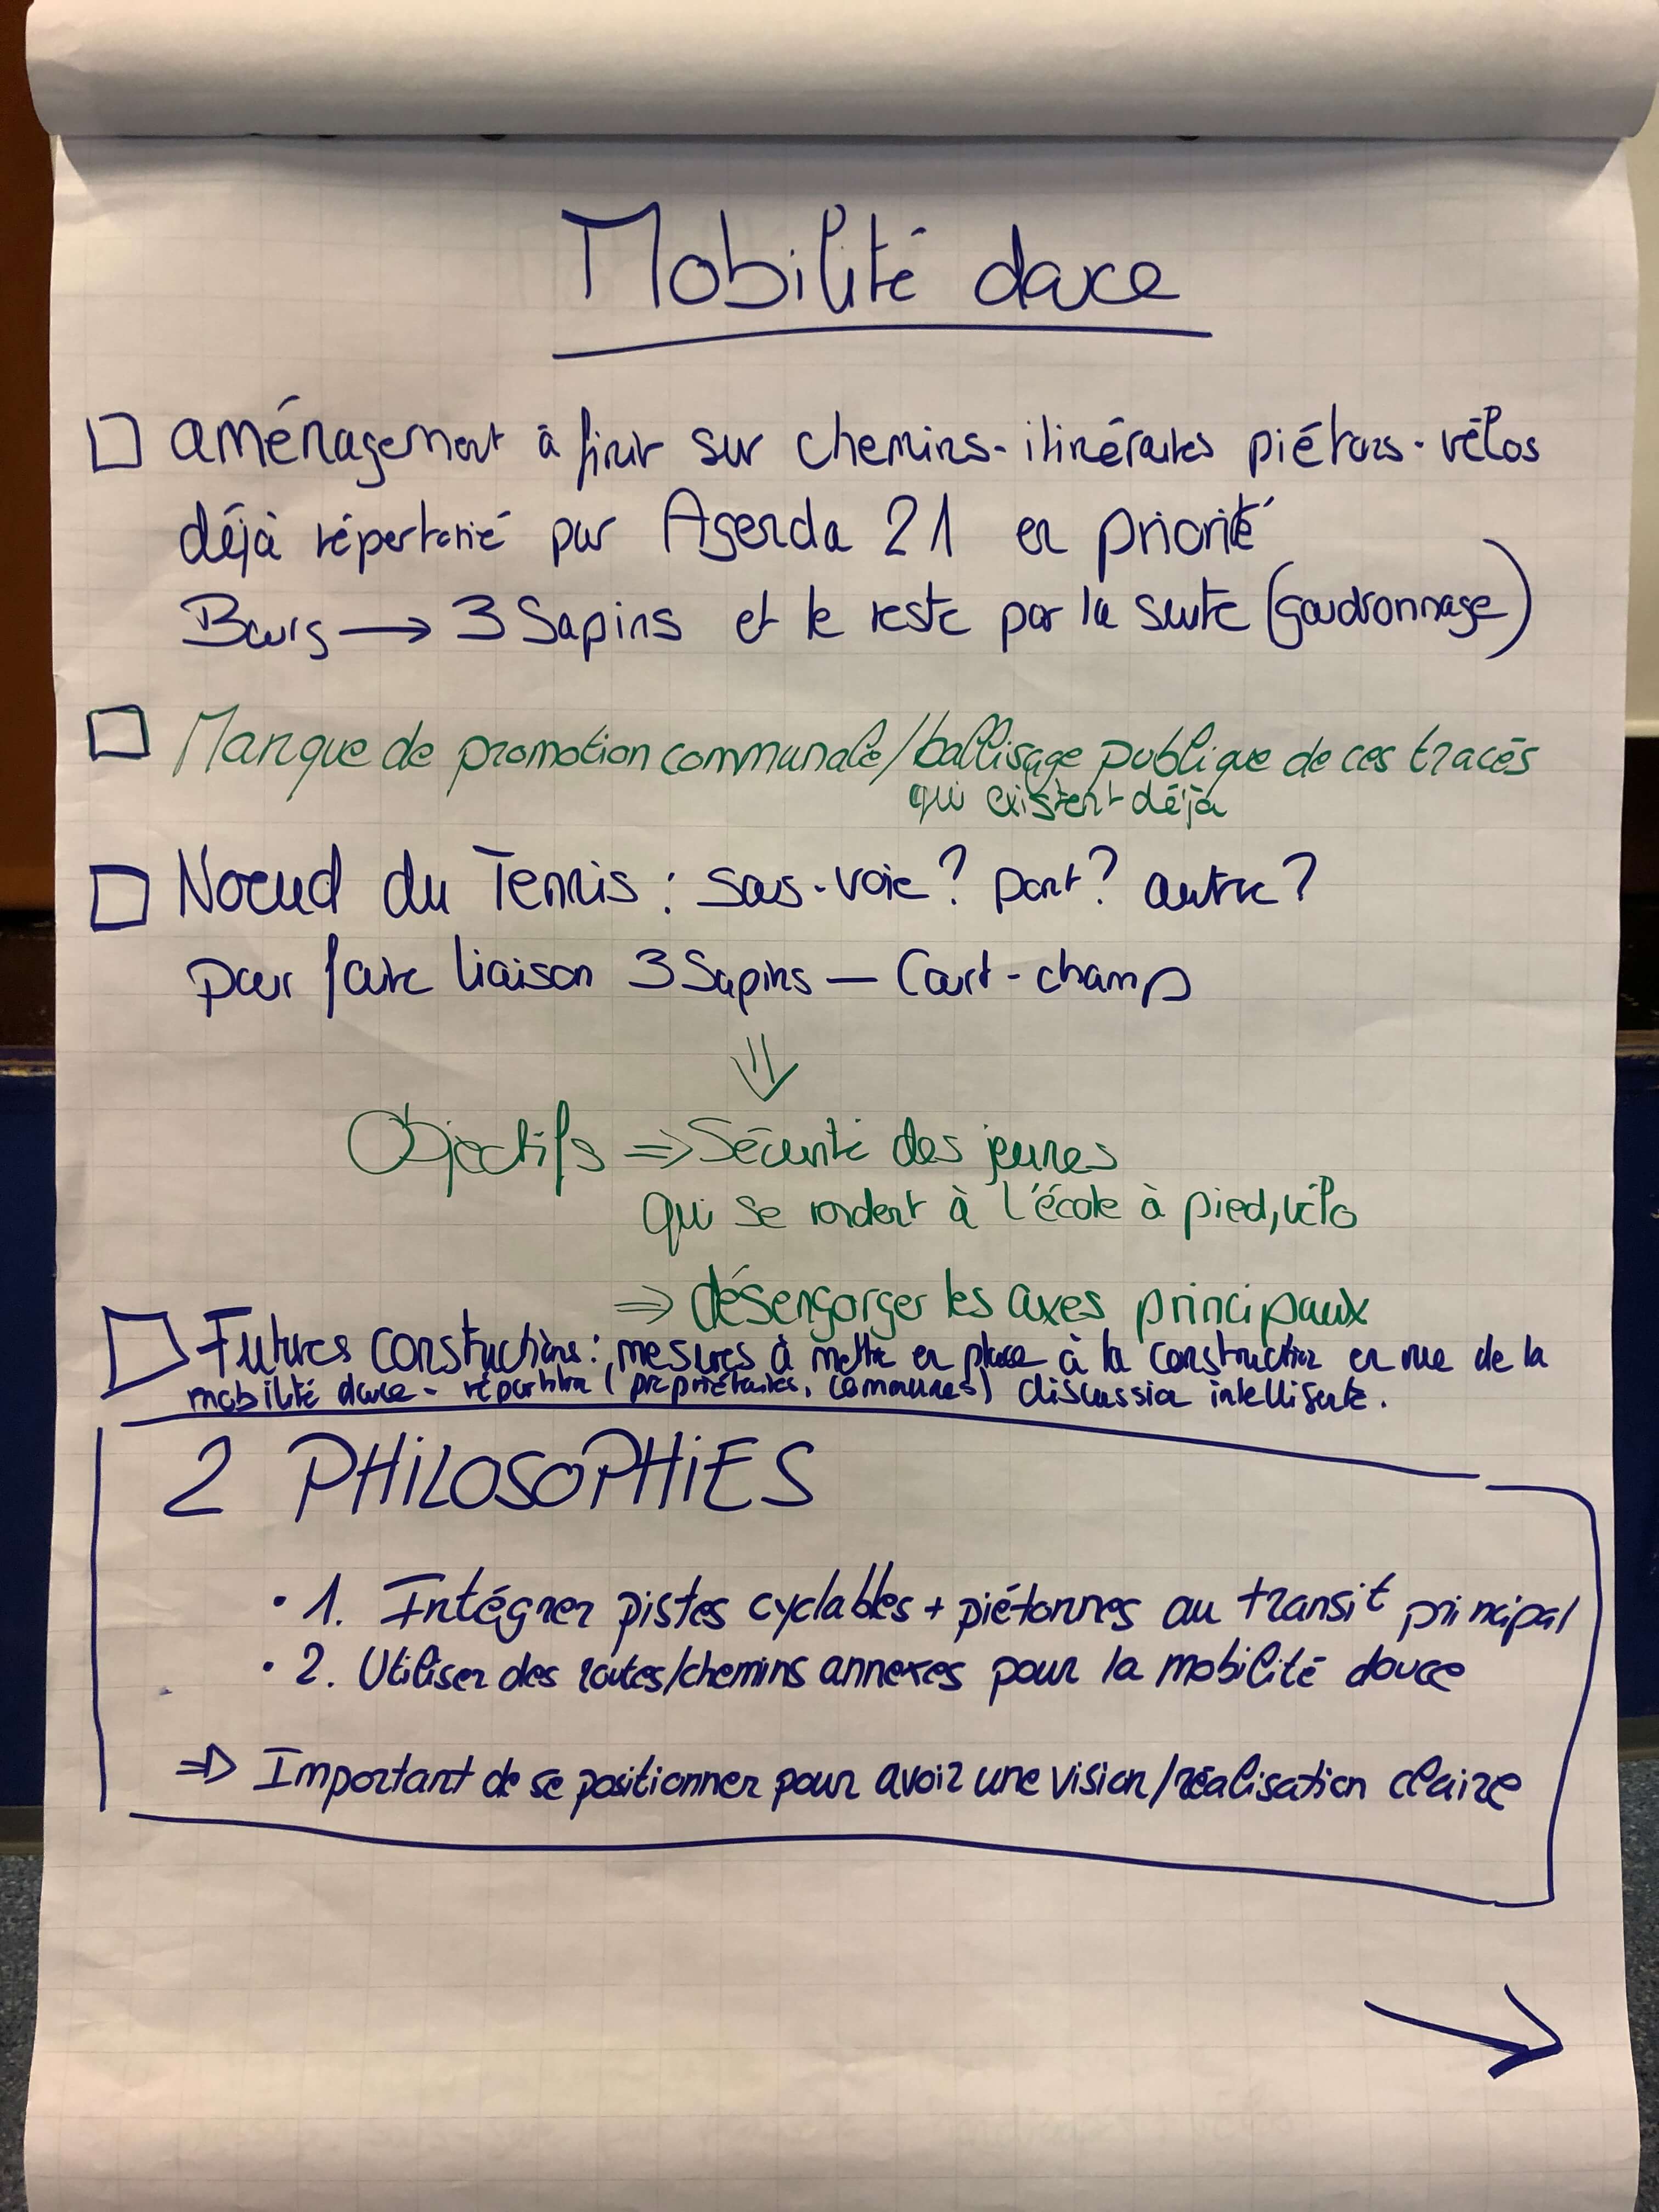 Mobilité douce
aménagement à finir sur chemins-itinéraires piétons-vélos
déjà répertorié par Agenda 21 en priorité
Bourg → 3 Sapins et le reste par la suite (goudronnage)
Manque de promotion communale/ballisage publique de ces tracés
qui existent déjà
Noeud du Tennis : sous-voie ? pont ? autre ?
pour faire liaison 3 Sapins — Court-champ
⇓
Objectifs ⇒ Sécurité des jeunes
qui se rendent à l'école à pied, vélo
⇒ désengorger les axes principaux
Futures constuctions : mesures à mettre en place à la construction en vue de la
mobilité douce - répartition (propriétaires, communes) discussion intelligente.
2 PHiLOSOPHiES
• 1. Intégrer pistes cyclables + piétonnes au transit principal
• 2. Utiliser des routes/chemins annexes pour la mobilité douce
⇒ Important de se positionner pour avoir une vision/réalisation claire
→